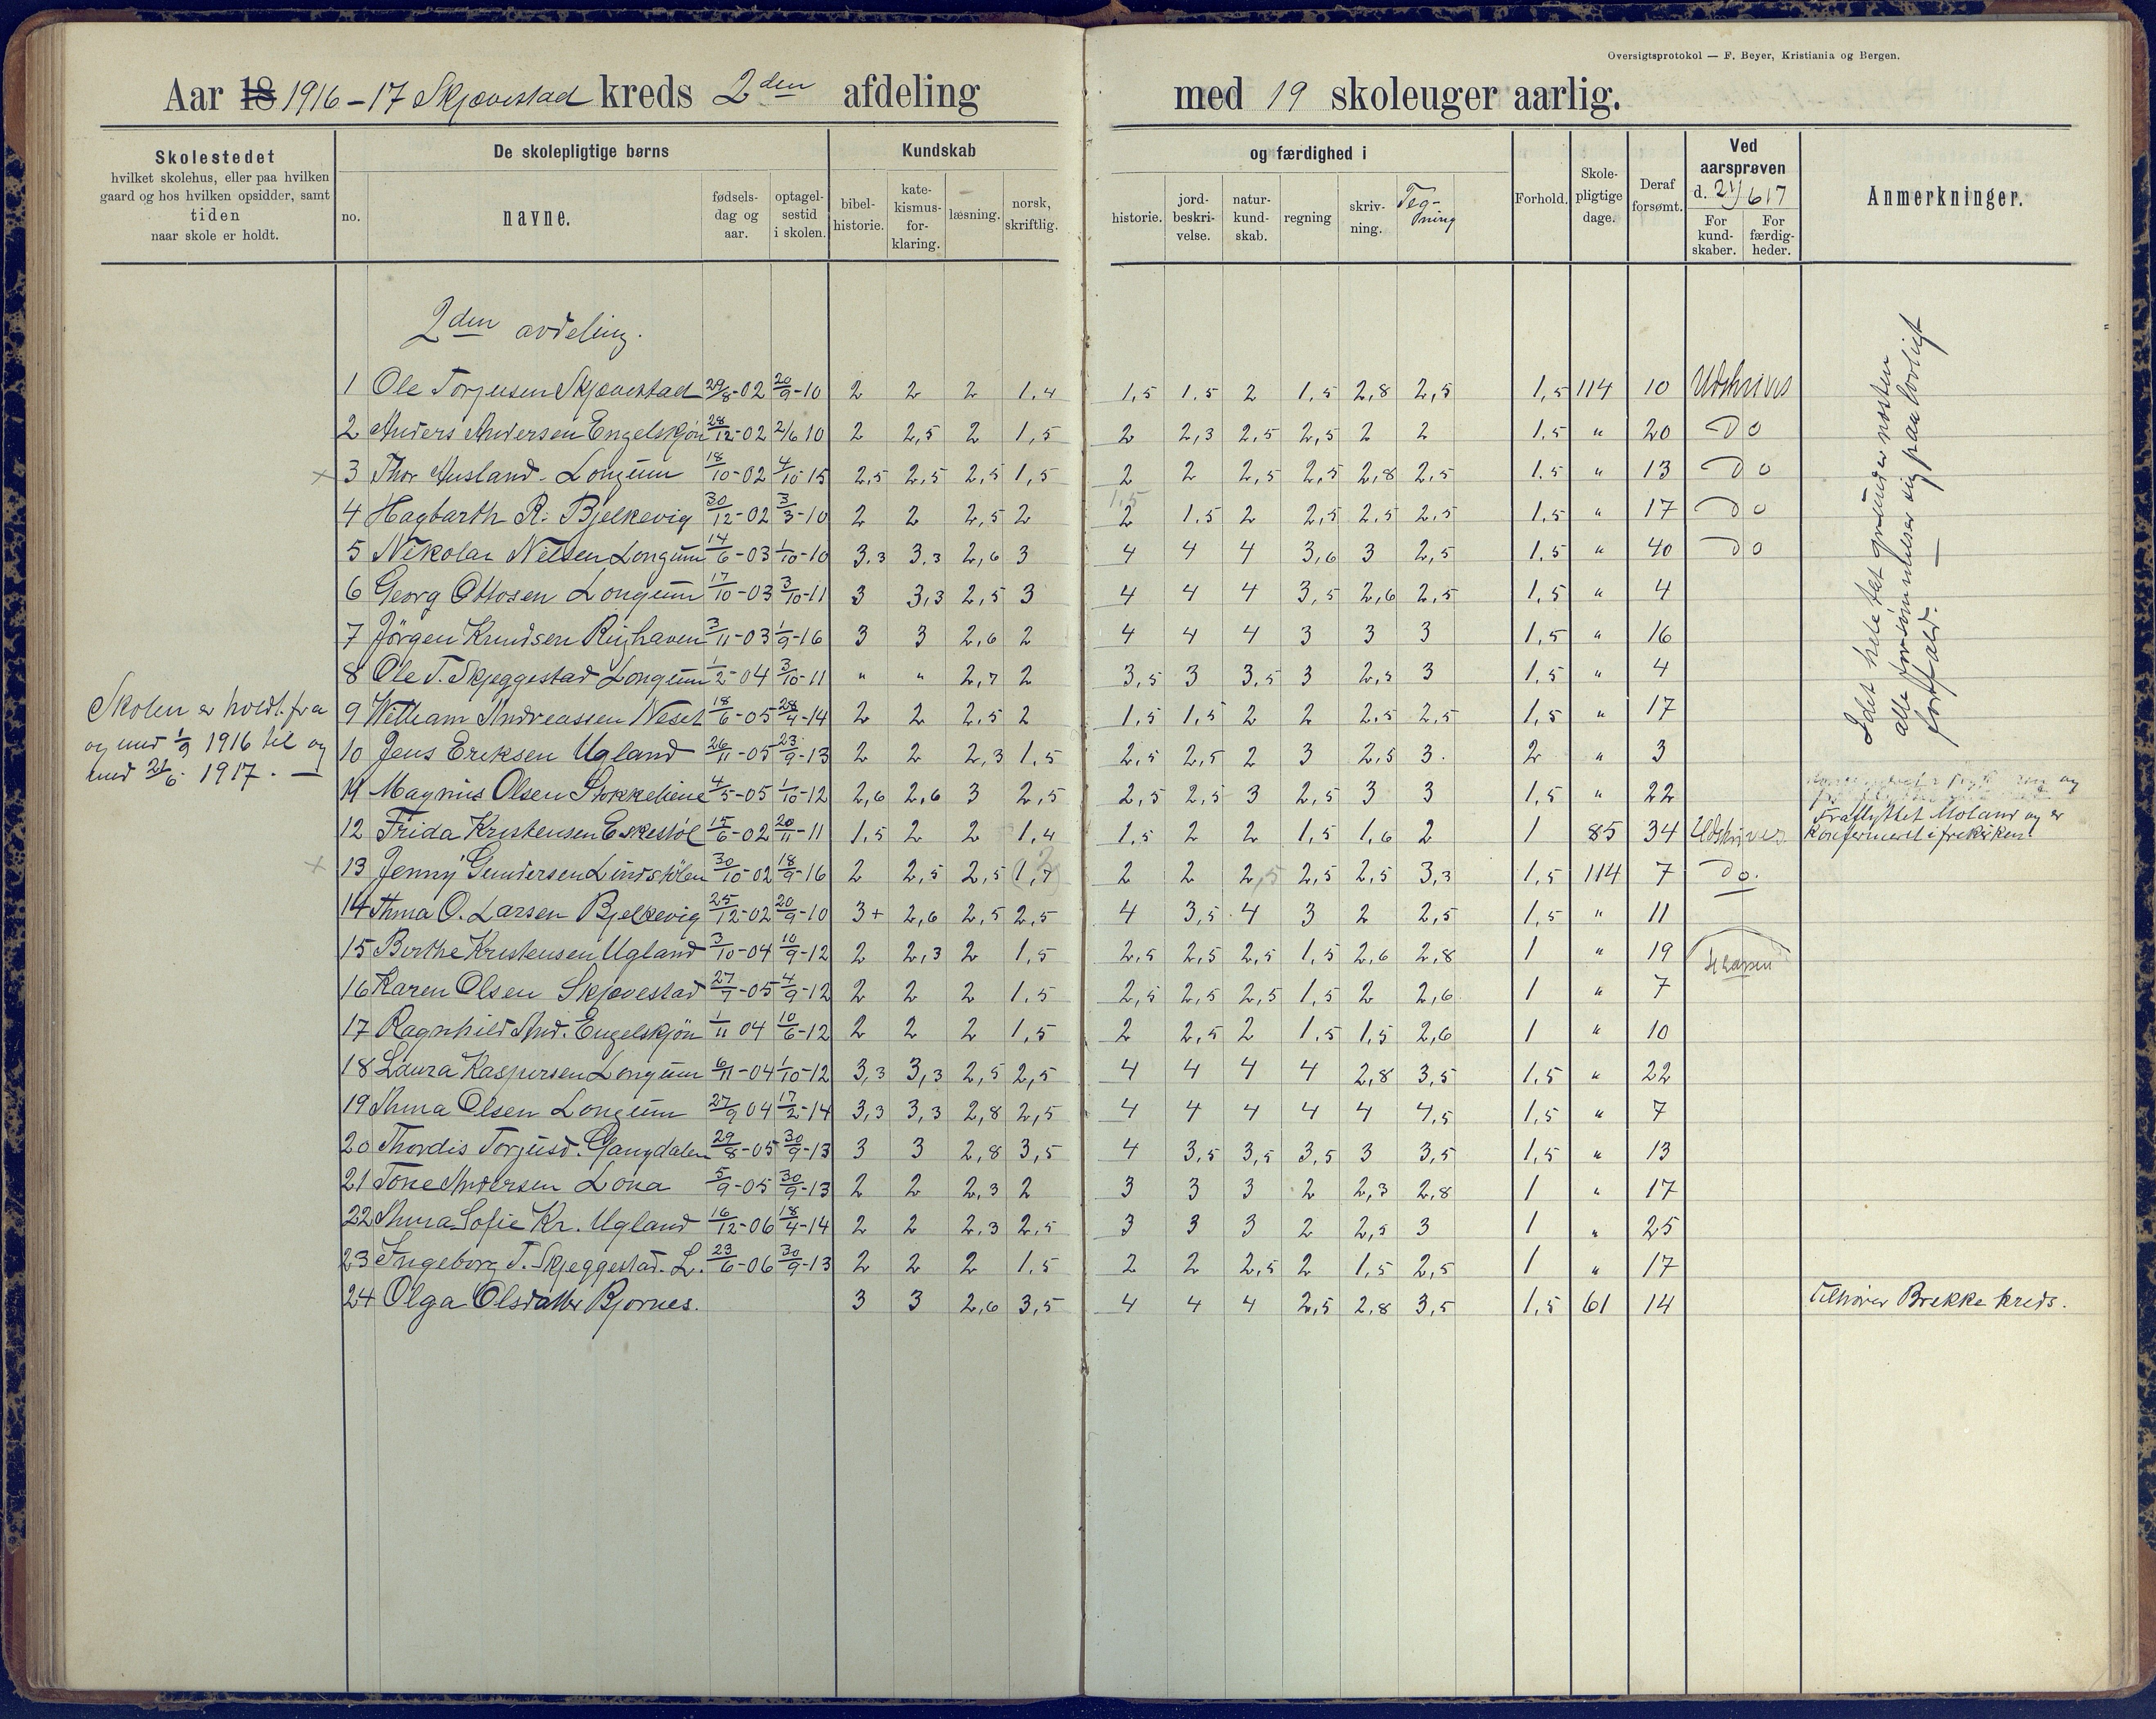 Oversigtsprotokol — F. Beyer, Kristiania og Bergen.
Aar 18 1916-17 Skjævestad kreds 2den afdeling med 19 skoleuger aarlig.
Skolestedet hvilket skolehus, eller paa hvilken gaard og hos hvilken opsidder, samt tiden naar skole er holdt.
De skolepligtige børns
no. navne. fødselsdag og aar. optagelsestid i skolen.
Kundskab og færdighed i
bibelhistorie. katekismusforklaring. læsning. norsk, skriftlig. historie. jordbeskrivelse. naturkundskab. regning skrivning. Tegning
Forhold. Skolepligtige dage. Deraf forsømt.
Ved aarsprøven d. 21/6 17
For kundskaber. For færdigheder.
Anmerkninger.
2den avdeling.
1 Ole Torjusen Skjævestad 29/8-02 20/9-10 2 2 2 1,4 1,5 1,5 2 1,5 2,8 2,5 1,5 114 10 Udskrives
2 Anders Andersen Engelskjøn 28/12-02 2/6 10 2 2,5 2 1,5 2 2,3 2,5 2,5 2 2 1,5 " 20 Do
3 Thor Ausland - Longum 18/10-02 4/10-15 2,5 2,5 2,5 1,5 2 2 2,5 2,5 2,8 2,5 1,5 " 13 Do
4 Hagbarth R. Bjelkevig 30/12-02 3/3-10 2 2 2,5 2 1,5 2 1,5 2 2,5 2,5 2,5 1,5 " 17 Do
5 Nikolai Nilsen Longum 14/6-03 1/10-10 3,3 3,3 2,6 3 4 4 4 3,6 3 2,5 1,5 " 40 Do
6 Georg Ottosen Longum 17/10-03 3/10-11 3 3,3 2,5 3 4 4 4 3,5 2,6 2,5 1,5 " 4
7 Jörgen Knudsen Rishaven 3/11-03 1/9-16 3 3 2,6 2 4 4 4 3 3 3 1,5 " 16
8 Ole T. Skjeggestad Longum 1/2-04 3/10-11 " " 2,7 2 3,5 3 3,5 3 2,5 3 1,5 " 4
9 William Andreassen Neset 18/6-05 28/4-14 2 2 2,5 2 1,5 1,5 2 2 2,5 2,5 1,5 " 17
10 Jens Eriksen Ugland 26/11-05 23/9-13 2 2 2,3 1,5 2,5 2,5 2 3 2,5 3. 2 " 3
11 Magnus Olsen Stokkeliene 4/5-05 1/10-12 2,6 2,6 3 2,5 2,5 2,5 3 2,5 3 3 1,5 " 22
12 Frida Kristensen Eskestøl 15/6-02 20/11-11 1,5 2 2 1,4 1,5 2 2 1,5 1,6 2 1 85 34 Udskrives Fraflyttet Moland og er konfirmert i frikirken
13 Jenny Gundersen Lindstølen 30/10-02 18/9-16 2 2,5 2,5 1,7 2 2 2 2,5 2,5 2,5 3,3 1,5 114 7 do.
14 Anna O. Larsen Bjelkevig 25/12-02 20/9-10 3+ 2,6 2,5 2,5 4 3,5 4 3 2 2,5 1,5 " 11
15 Birthe Kristensen Ugland 3/10-04 10/9-12 2 2,3 2 1,5 2,5 2,5 2,5 1,5 2,6 2,8 1 " 19
16 Karen Olsen Skjævestad 27/7-05 4/9-12 2 2 2 1,5 2,5 2,5 2,5 1,5 2 2,6 1 " 7
17 Ragnhild And. Engelskjön 1/11 04 10/6-12 2 2 2 1,5 2 2,5 2 1,5 1,5 2,6 1 " 10
18 Laura Kaspersen Longum 6/11-04 1/10-12 3,3 3,3 2,5 2,5 4 4 4 4 2,8 3,5 1,5 " 22
19 Anna Olsen Longum 27/9 04 17/2-14 3,3 3,3 2,8 2,5 4 4 4 4 4 4,5 1,5 " 7
20 Thordis Torjusd. Gangdalen 29/8-05 30/9-13 3 3 2,8 3,5 4 3,5 3,5 3,5 3 3,5 1,5 " 13
21 Tone Andersen Lona 5/9-05 30/9-13 2 2 2,3 2 3 3 3 2 2,3 2,8 1 " 17
22 Anna Sofie Kr. Ugland 16/12-06 18/4-14 2 2 2,3 2,5 3 3 3 2 2,5 3 1 " 25
23 Ingeborg T. Skjeggestad. L. 23/6-06 30/9-13 2 2 2 1,5 2 2 2,5 2 1,5 2,5 1 " 17
24 Olga Olsdatter Bjornes. 3 3 2,6 3,5 4 4 4 2,5 2,8 3,5 1,5 61 14 Tilhører Brekke kreds.
Skolen er holdt fra
og med 1/9 1916 til og
med 21/6. 1917. —
H Larsen
Idet hele tat grunder næsten
alle forsømmelser sig paa lovligt
forfald. —